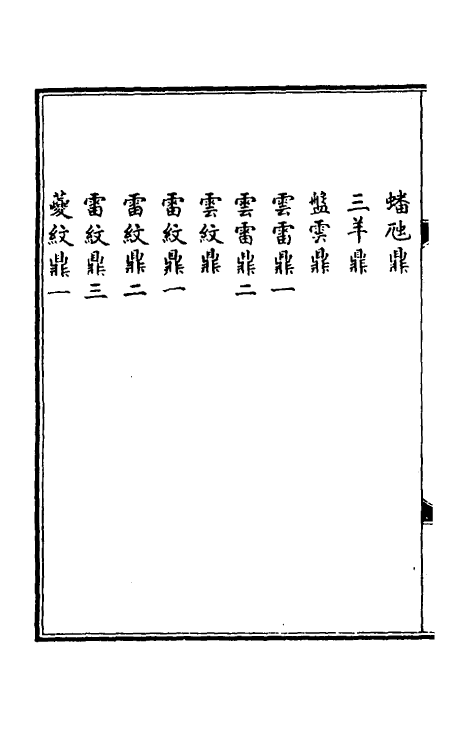 蟠虺鼎
三羊鼎
盤雲鼎
雲雷鼎一
雲雷鼎二
雲紋鼎
雷紋鼎一
雷紋鼎二
雷紋鼎三
夔紋鼎一